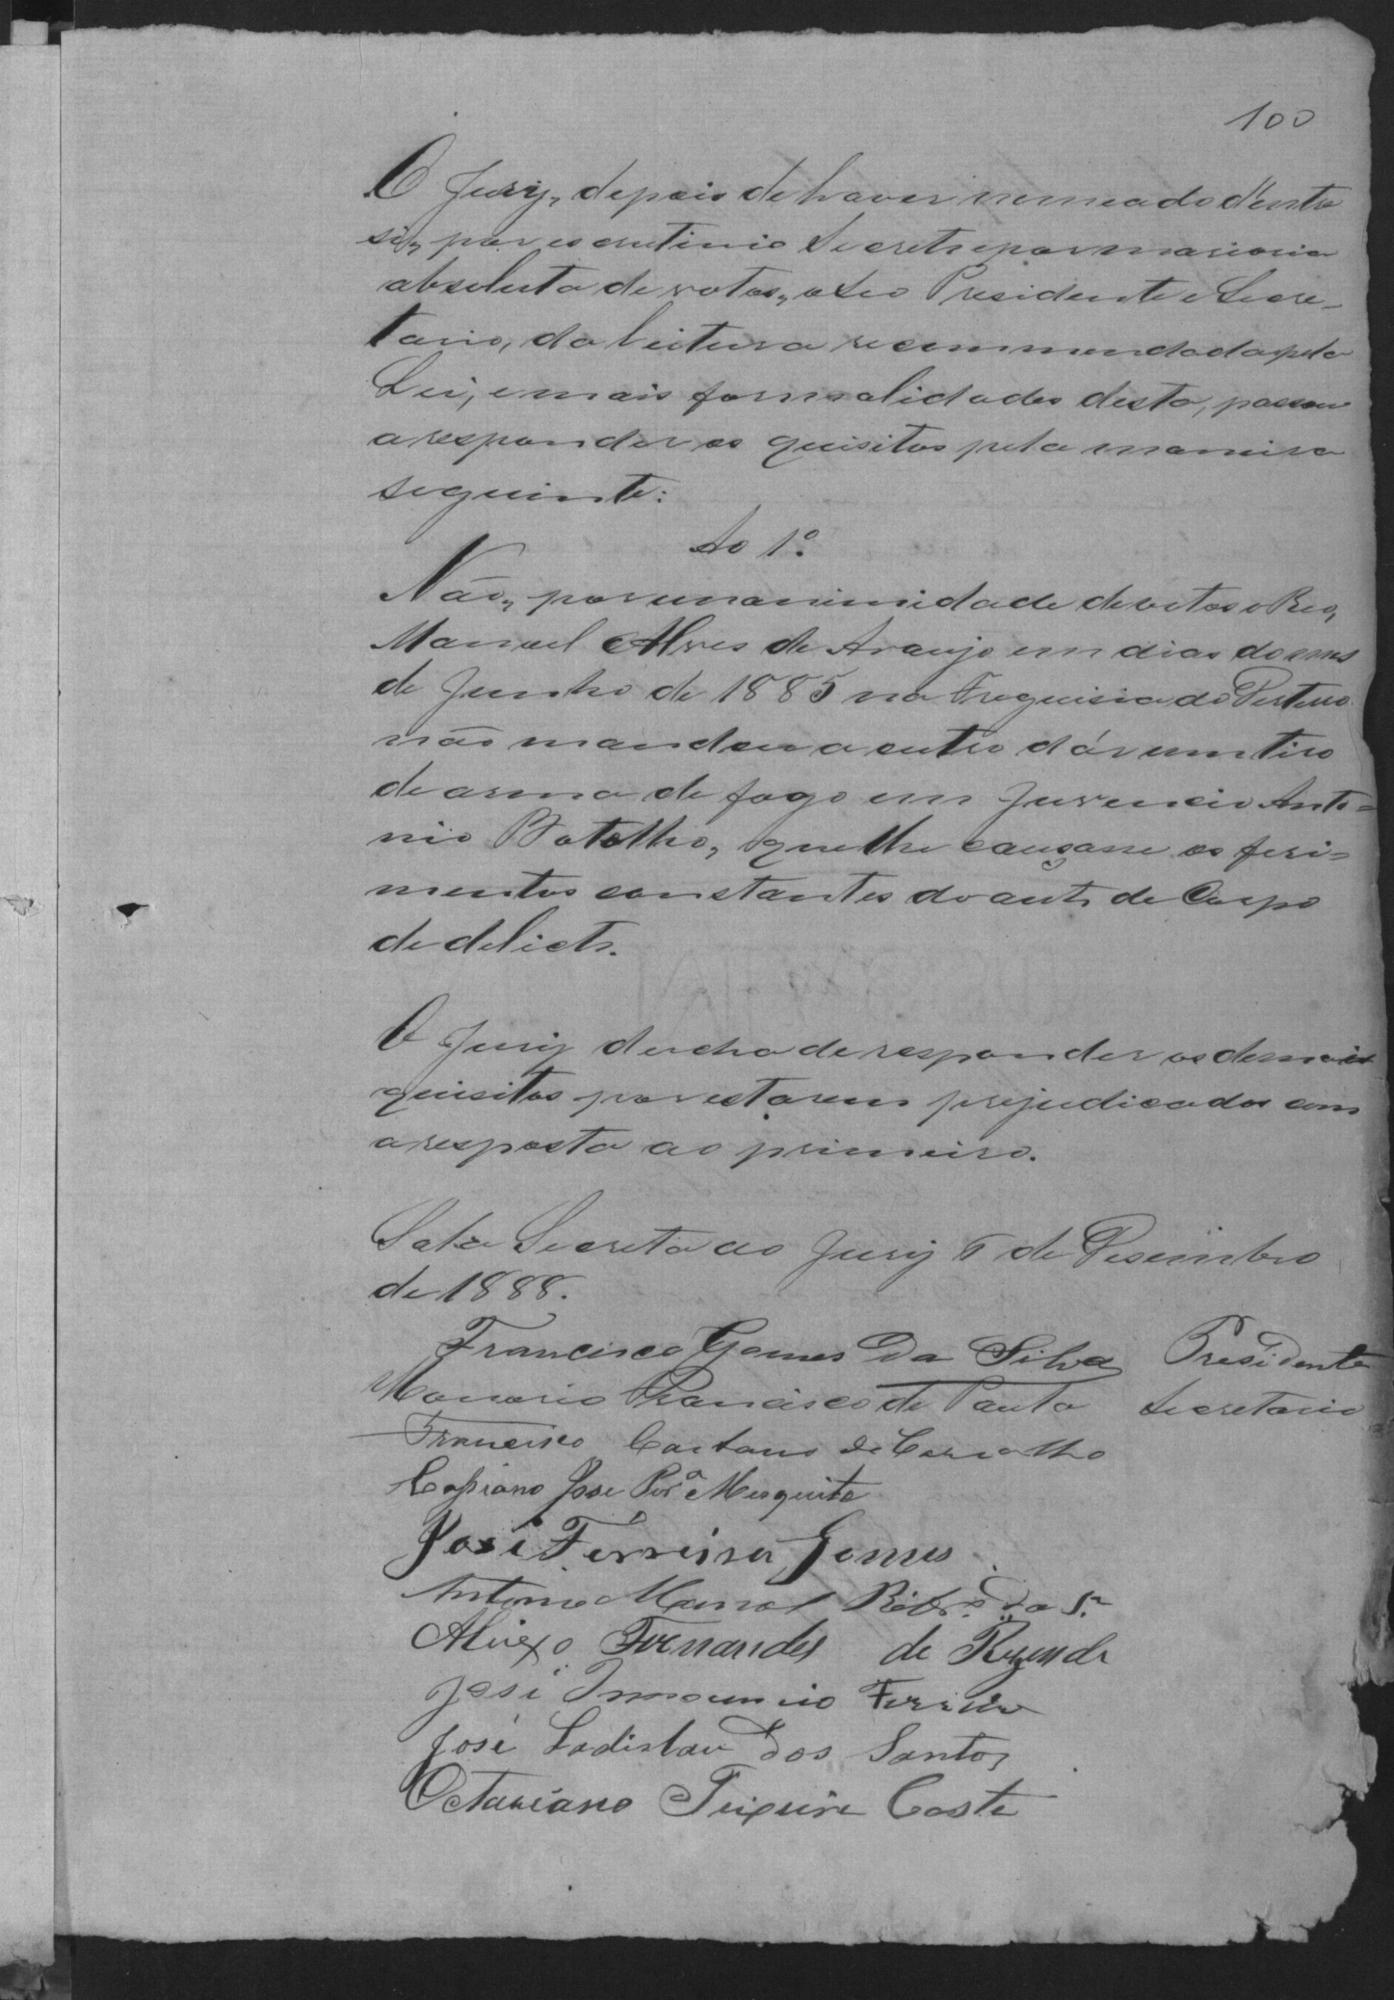 100
O Jury, depois de haver nomeado d'entre
si, por escrutinio secreto e por maioria
absoluta de votos, o seo Presidente e Secre-
tario, da leitura recommendada pela
Lei, e mais formalidades desta, passou
a responder os quisitos pela maneira
seguinte:
Ao 1º.
Não, por unanimidade de votos o Reo,
Manoel Alves de Araujo em dias do mes
de Junho de 1885 na Freguisia do
não mandou a outro dár um tiro
de arma de fogo em Juvencio Anto=
nio Botelho, que lhe causasse os feri=
mentos constantes do auto de Corpo
de delicto.
O Jury deicha de responder os demais
quisitos por estarem prejudicados com
a resposta ao primeiro.
Sala Secreta do Jury 6 de Desembro
de 1888.
Francisco Gomes da Silva Presidente
Francisco de Paula Secretario
Francisco Caetano de Carvalho
José Perª Mesquita
José Ferreira Gomes
Antonio Manoel Ribrº da Sª
Aleixo Fernandes de Rezende
José Innocencio Ferreira
José Ladislau dos Santos
Octaviano Teixeira Costa